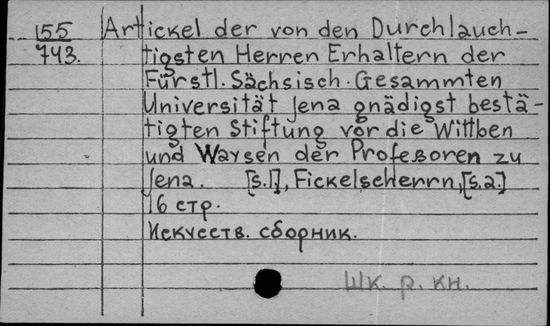 155
743.
Artickel der von den Durchlauch-
tigsten Herren Erhaltern der
Fürstl. Sächsisch. Gesammten
Universität Jena gnädigst bestä-
tigten Stiftung vor die Wittben
und Waysen der Profeßoren zu
Jena. [s.l], Fickelscherrn, [s.a.]
16 стр.
Искусств. сборник.
Шк. р. кн.